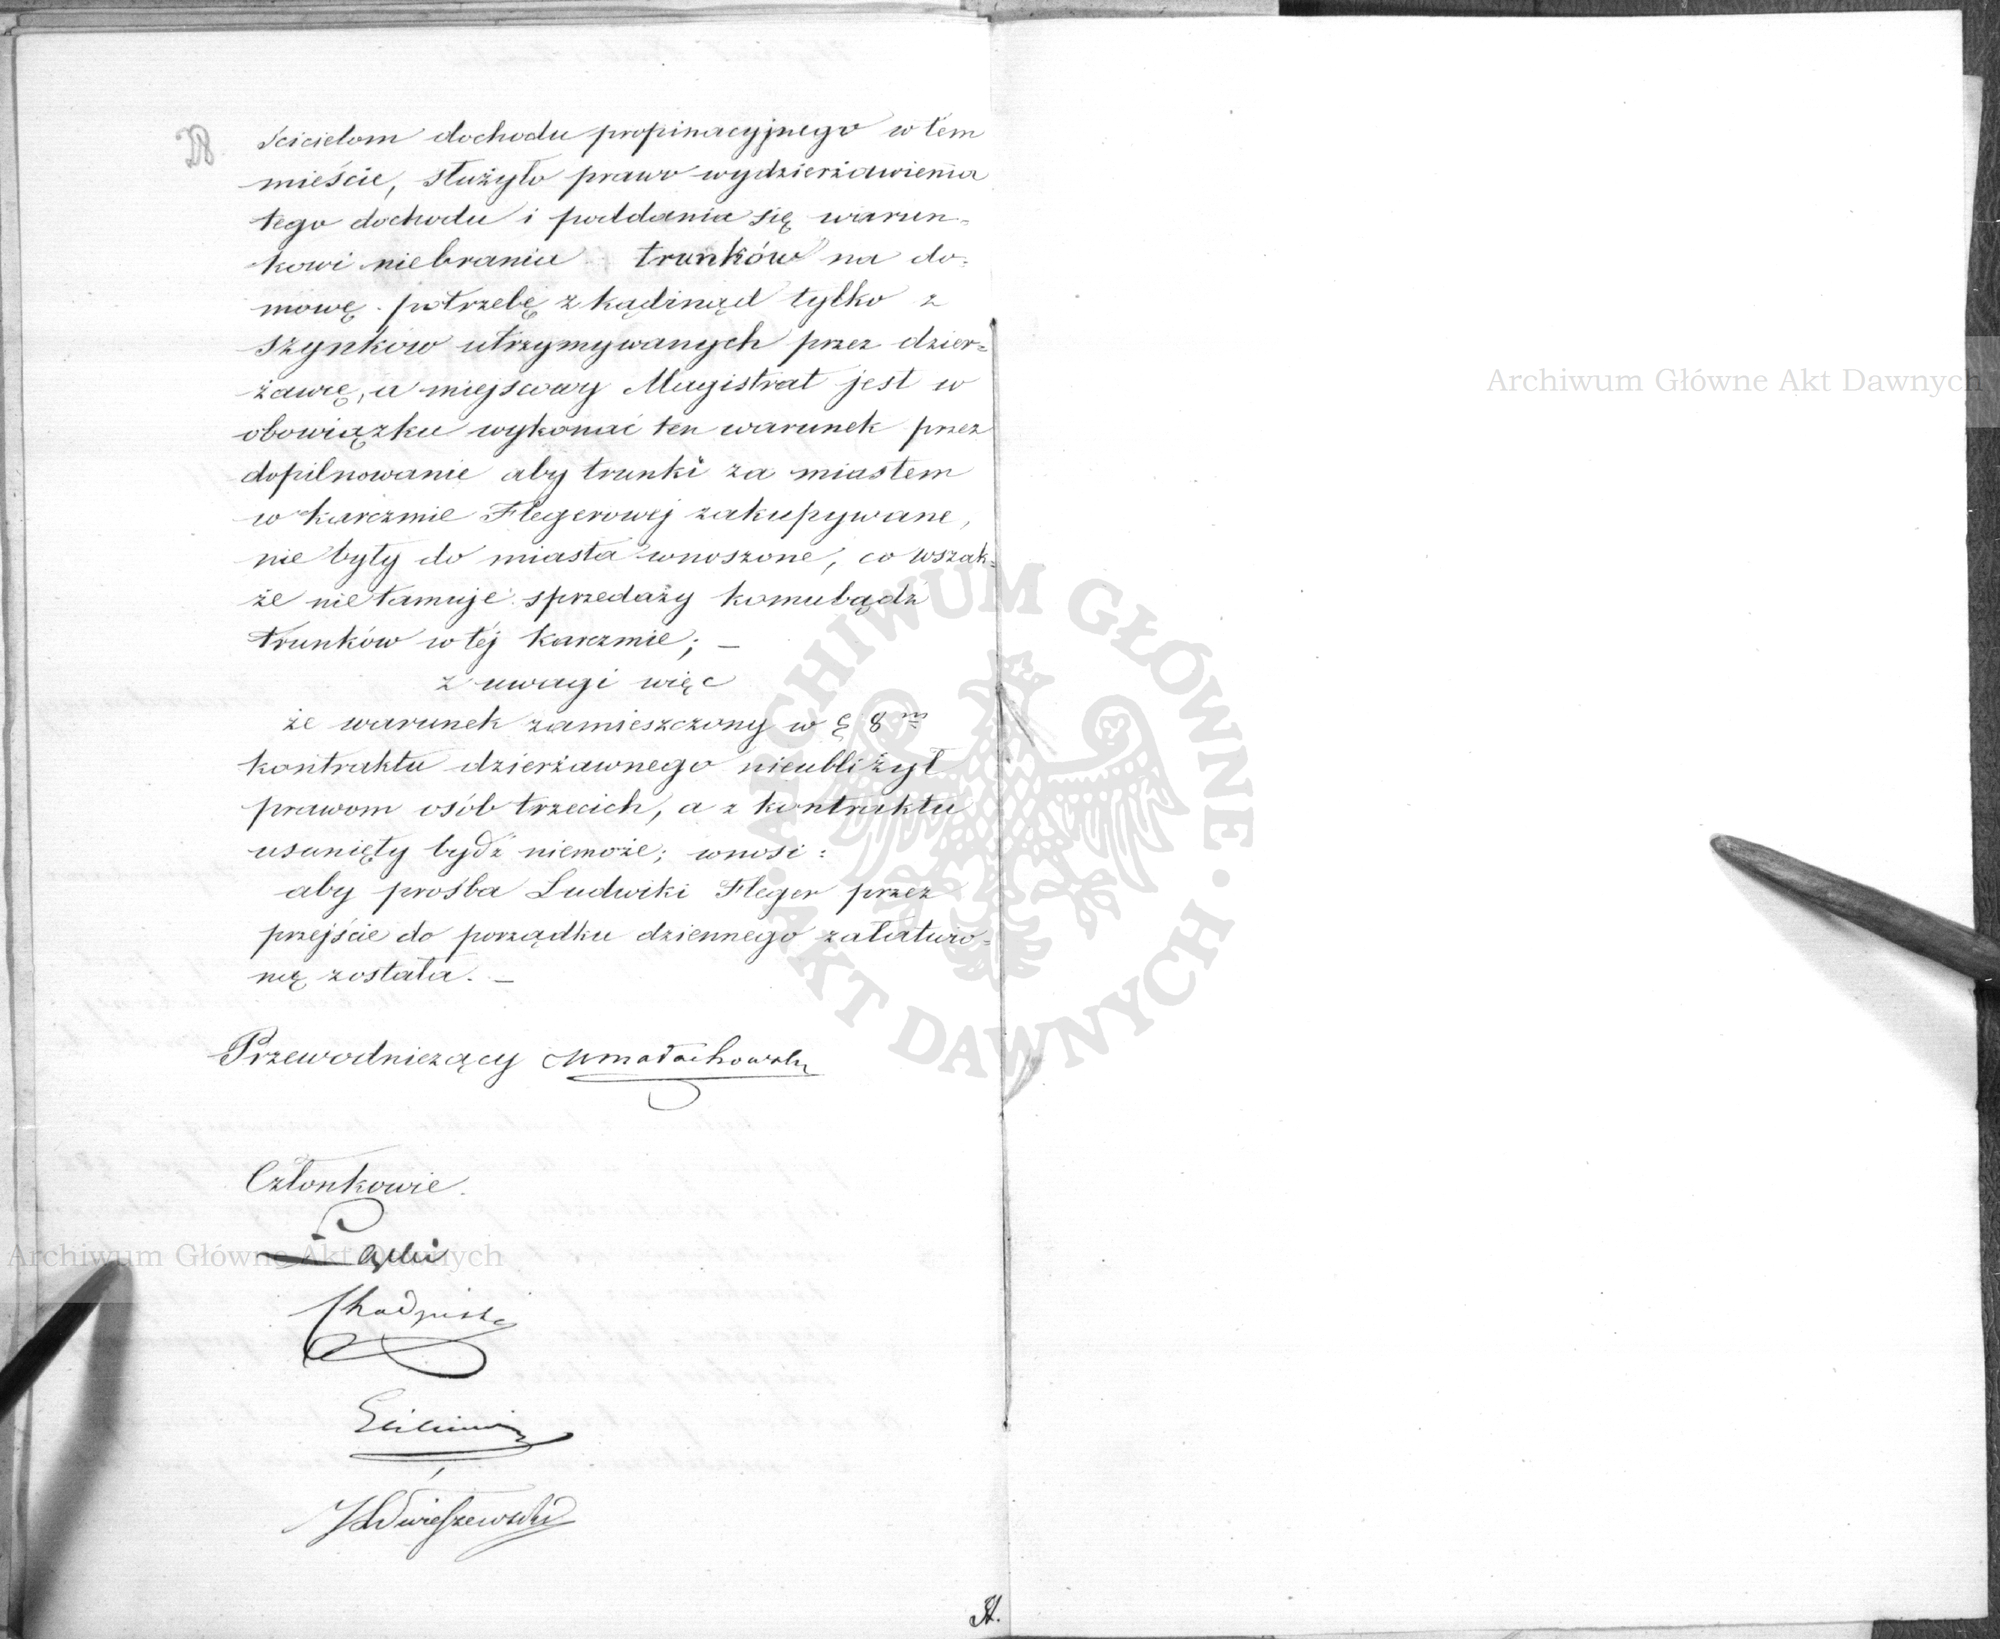 ścicielom dochodu propinacyjnego w tém
mieście, służyło prawo wydzierżawienia
tego dochodu i poddania się warun=
kowi niebrania trunków na do=
mowę potrzebę zkądinąd tylko z
szynków utrzymywanych przez dzier=
żawcę, a miejscowy Magistrat jest w
obowiązku wykonać ten warunek przez
dopilnowanie aby trunki za miastem
w karczmie Flegerowej zakupywane,
nie były do miasta wnoszone, co wszak=
że nie tamuje sprzedaży komubądź
trunków w téj karczmie; —
z uwagi więc
że warunek zamieszczony w § 8 m
kontraktu dzierżawnego nieubliżył
prawom osób trzecich, a z kontraktu
usunięty bydź niemoże; wnosi:
aby prośba Ludwiki Fleger przez
przejście do porządku dziennego załatwio=
ną została. —
Przewodniczący Małachowski
Członkowie.
Archiwum Główne Akt Dawnych
Archiwum Główne Akt Dawnych
ARCHIWUM GŁÓWNE · AKT DAWNYCH ·